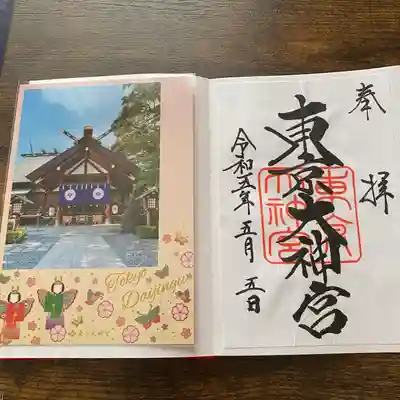 Tokyo
Daijingu
奉拝
東京大神宮
令和五年五月五日